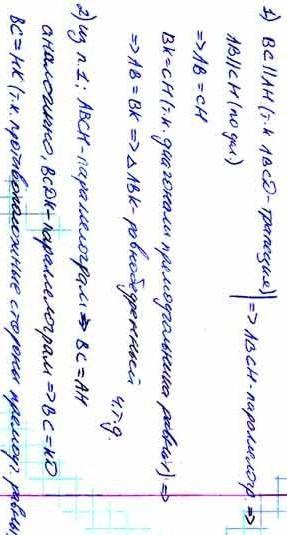 1) BC||AH (т.к ABCD-трапеция) | => ABCH-параллелогр. =>
AB||CH (по усл.)
=> AB = CH
BK=CH (т.к. диагонали прямоугольника равны) =>
=> AB = BK => △ABK- равнобедренный
ч.т.д.
2) из п.1: ABCH-параллелограм => BC = AH
аналогично, BCDK-параллелограм => BC = KD
BC = HK (т.к. противоположные стороны прямоуг. равны,